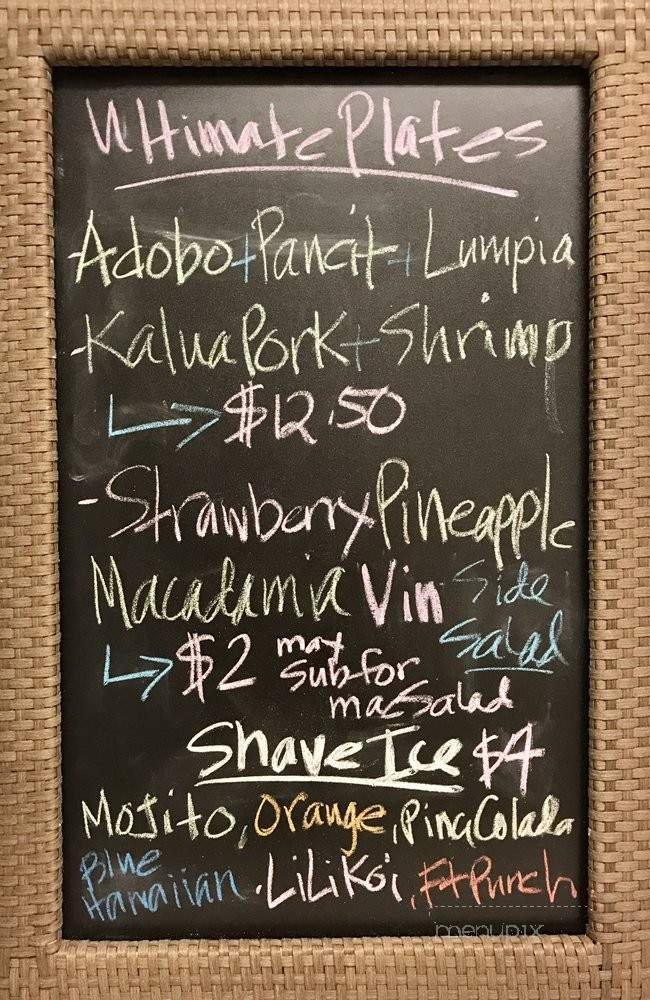 Ultimate Plates
-Adobo+Pancit+Lumpia
-Kalua Pork+Shrimp
$12.50
-Strawberry Pineapple
Macadamia Vin Side
Salad
$2 may
sub for
mac Salad
Shave Ice $4
Mojito, Orange, Pina Colada
Blue
Hawaiian . LiLiKoi, Ft Punch
menupix